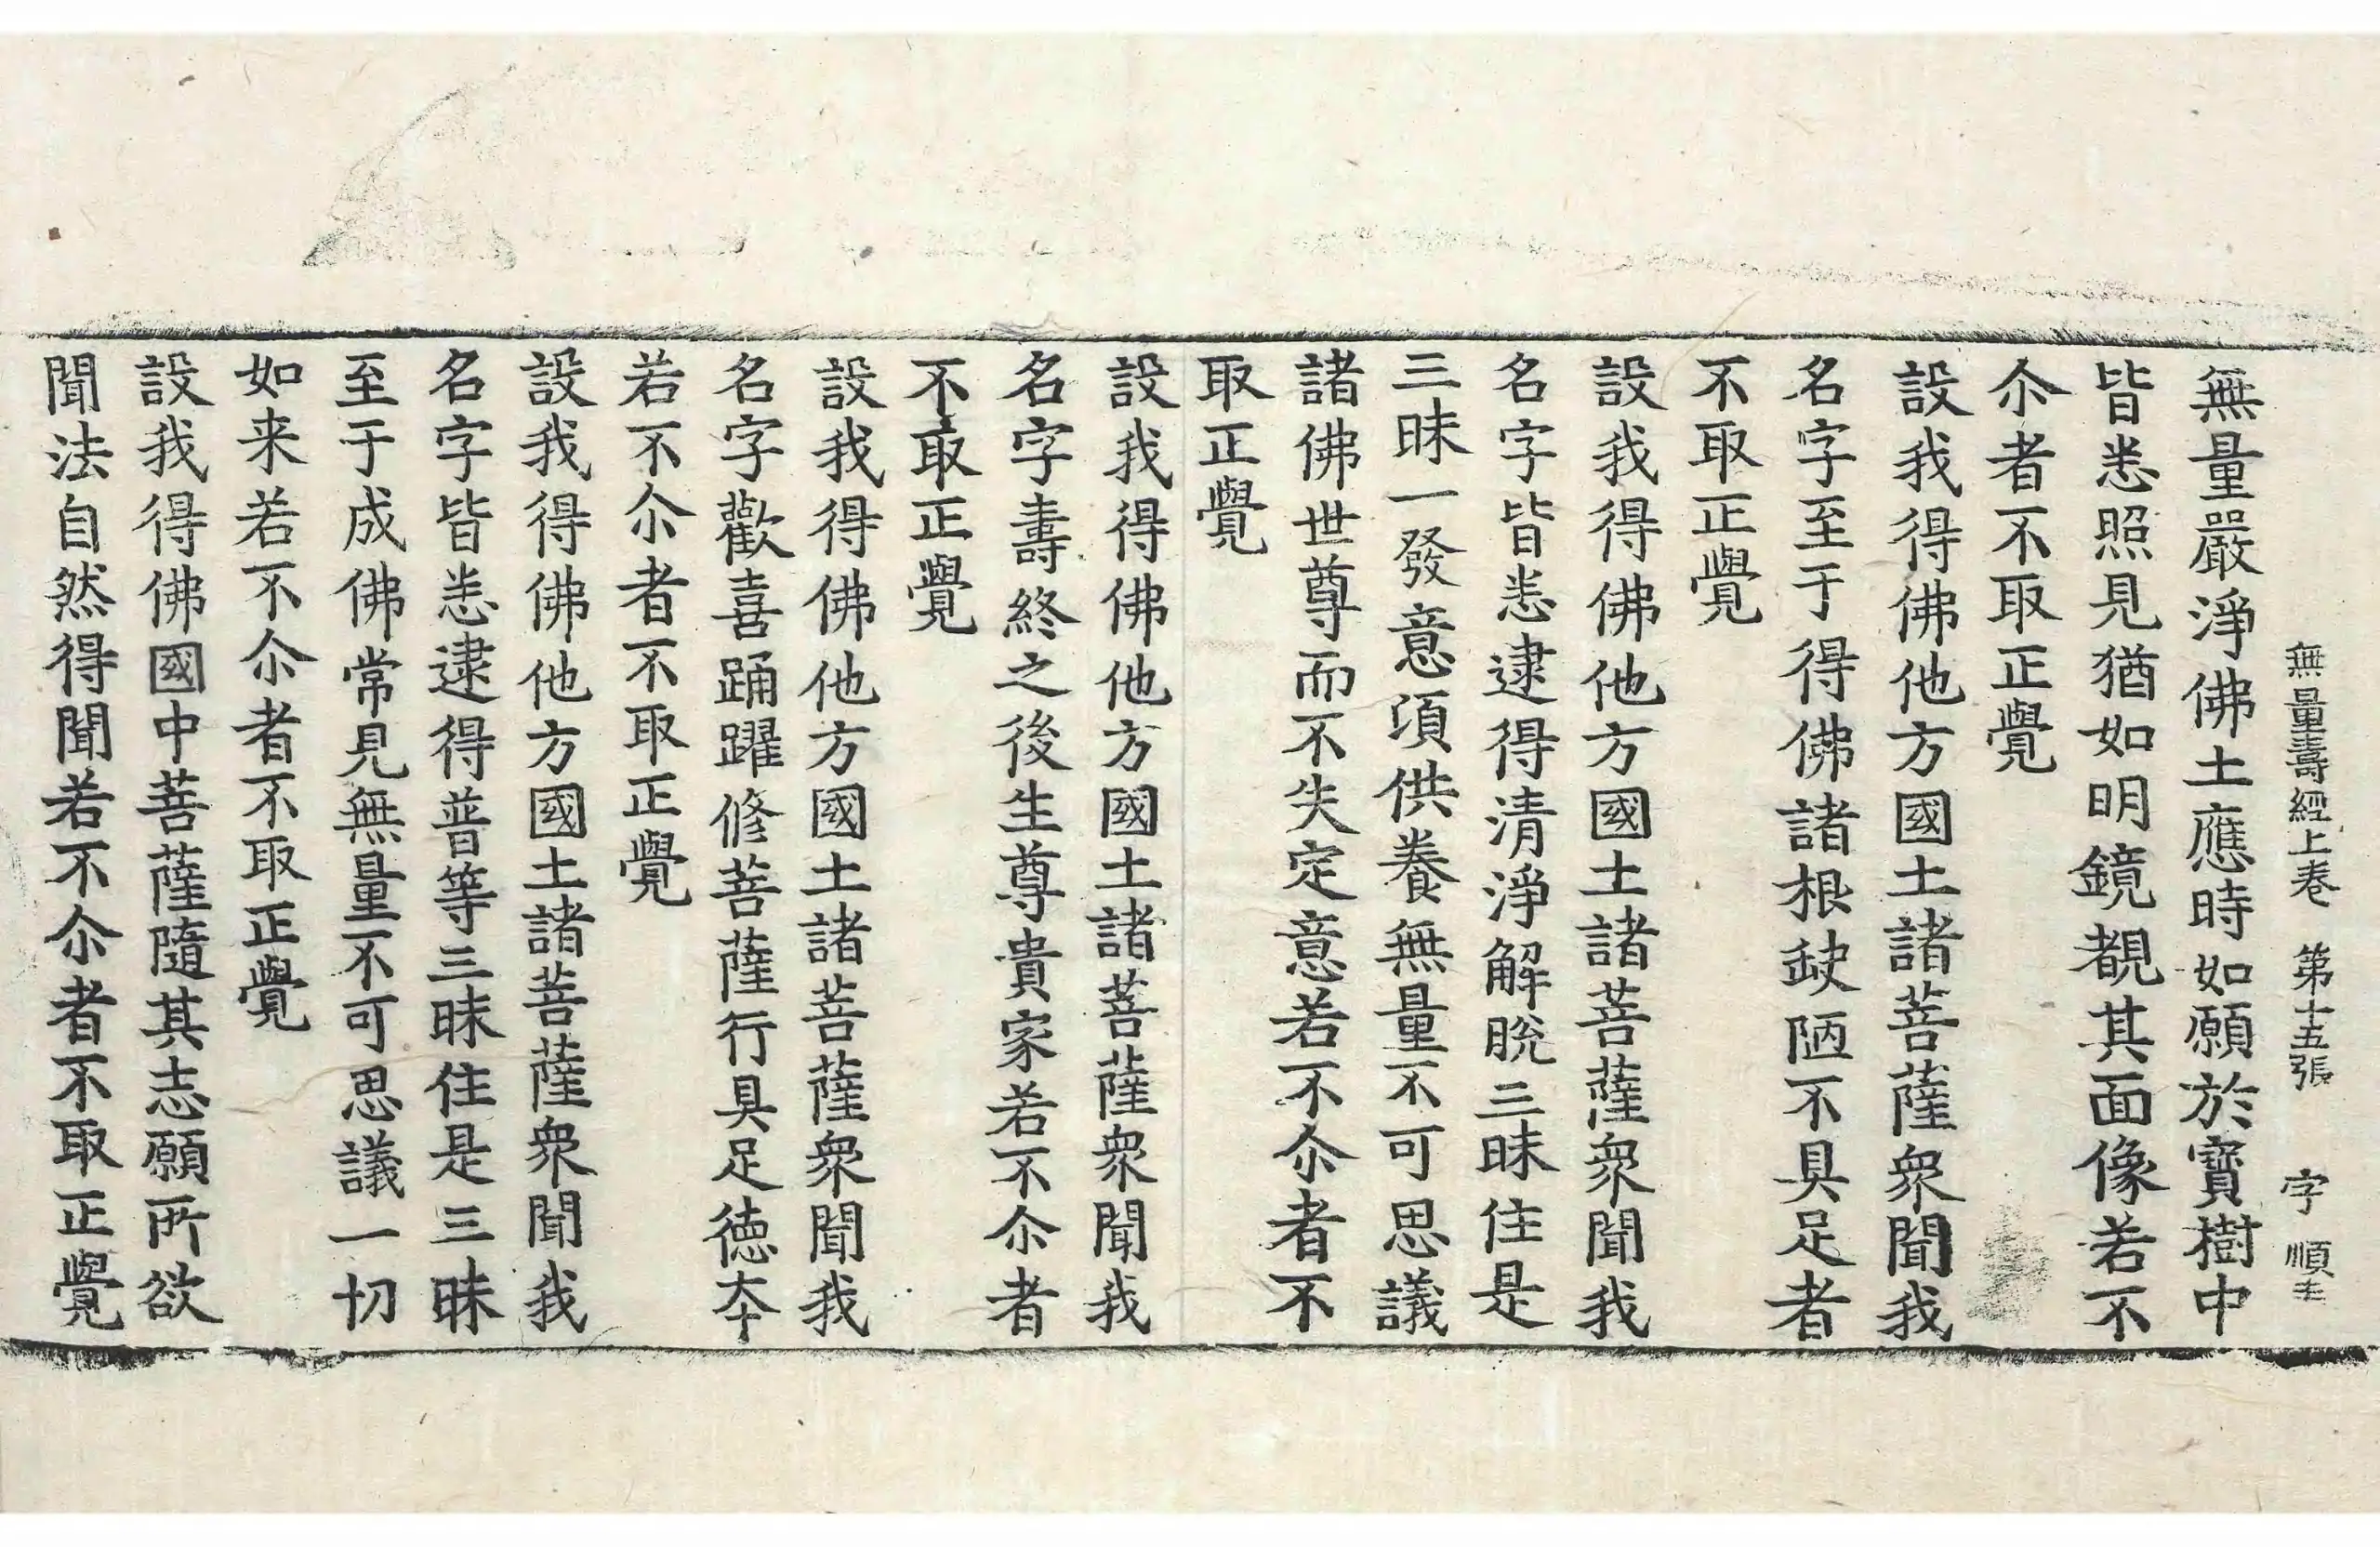 無量壽經上卷 第十五張 字 順主
無量嚴淨佛土應時如願於寶樹中
皆悉照見猶如明鏡覩其面像若不
尒者不取正覺
設我得佛他方國土諸菩薩衆聞我
名字至于得佛諸根缺陋不具足者
不取正覺
設我得佛他方國土諸菩薩衆聞我
名字皆悉逮得清淨解脫三昧住是
三昧一發意頃供養無量不可思議
諸佛世尊而不失定意若不尒者不
取正覺
設我得佛他方國土諸菩薩衆聞我
名字壽終之後生尊貴家若不尒者
不取正覺
設我得佛他方國土諸菩薩衆聞我
名字歡喜踊躍修菩薩行具足德夲
若不尒者不取正覺
設我得佛他方國土諸菩薩衆聞我
名字皆悉逮得普等三昧住是三昧
至于成佛常見無量不可思議一切
如来若不尒者不取正覺
設我得佛國中菩薩隨其志願所欲
聞法自然得聞若不尒者不取正覺